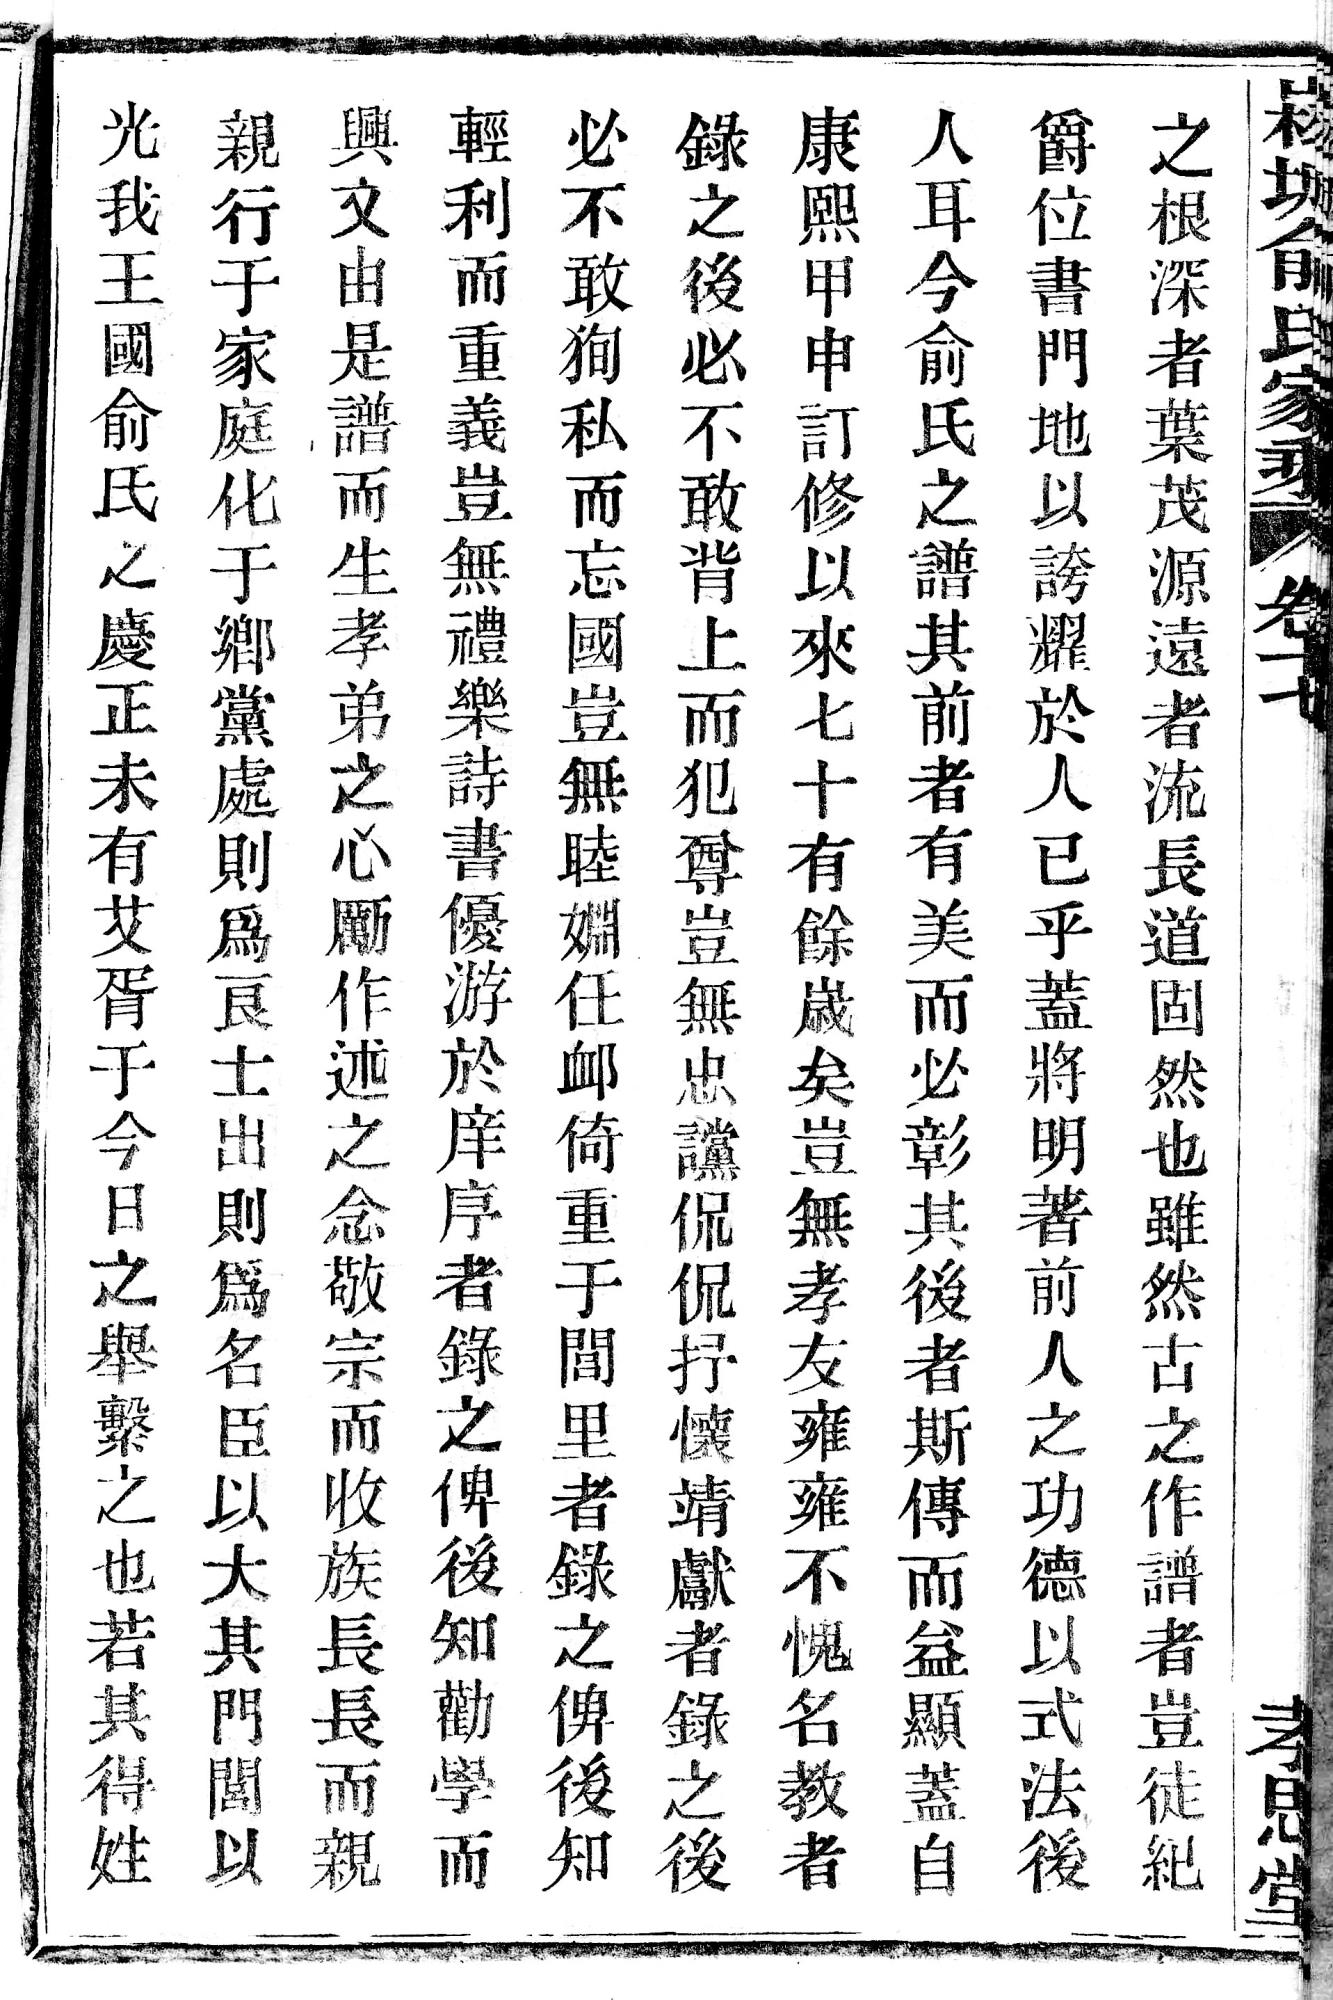 俞氏家乘
卷十七
孝思堂
之根深者葉茂源遠者流長道固然也雖然古之作譜者豈徒紀
爵位書門地以誇耀於人已乎蓋將明著前人之功德以式法後
人耳今俞氏之譜其前者有美而必彰其後者斯傳而益顯蓋自
康熙甲申訂修以來七十有餘歲矣豈無孝友雍雍不愧名教者
錄之後必不敢背上而犯尊豈無忠讜侃侃抒懷靖獻者錄之後
必不敢狥私而忘國豈無睦婣任卹倚重于閭里者錄之俾後知
輕利而重義豈無禮樂詩書優游於庠序者錄之俾後知勸學而
興文由是譜而生孝弟之心勵作述之念敬宗而收族長長而親
親行于家庭化于鄉黨處則爲良士出則爲名臣以大其門閭以
光我王國俞氏之慶正未有艾胥于今日之舉繫之也若其得姓